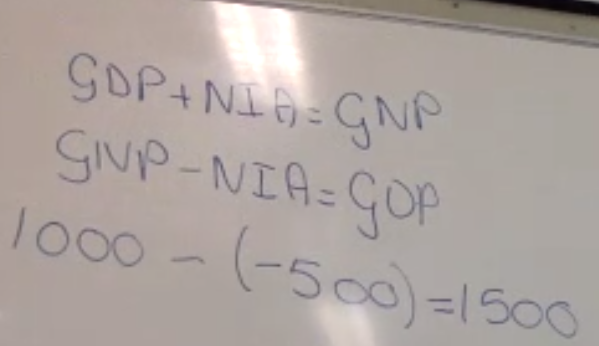 GDP+NIA=GNP
GNP-NIA=GDP
1000-(-500)=1500